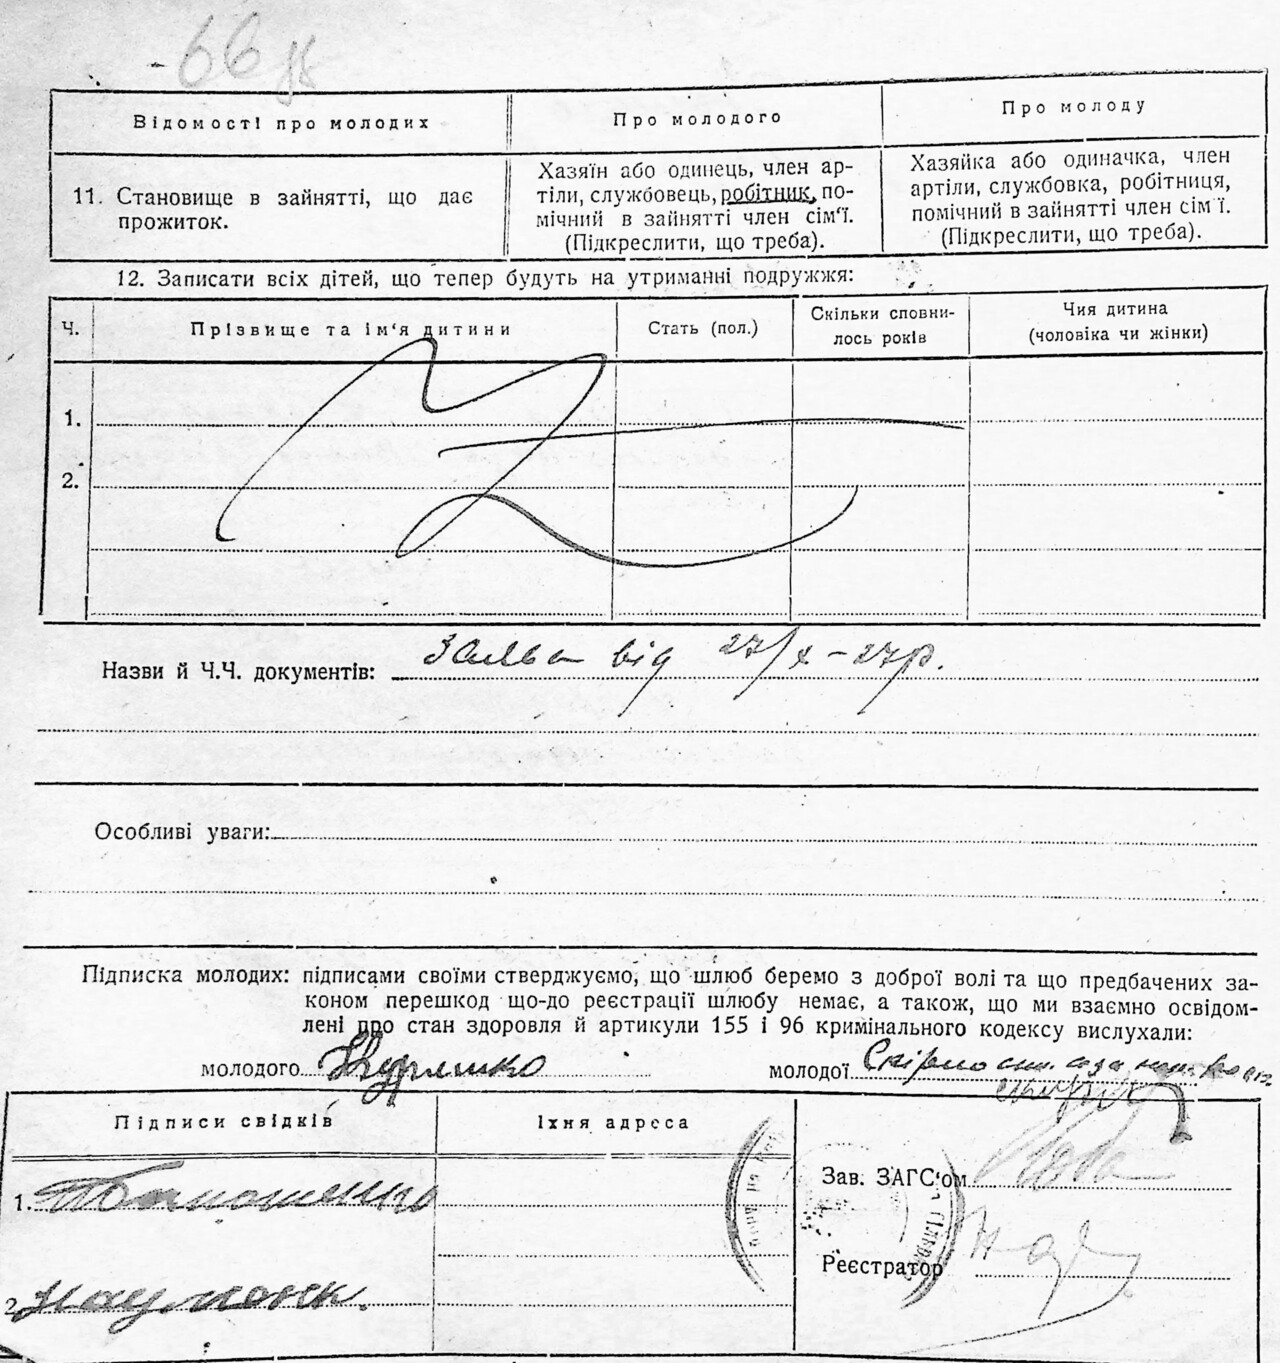 66
Відомості про молодих
Про молодого
Про молоду
11. Становище в зайнятті, що дає
прожиток.
Хазяїн або одинець, член ар-
тіли, службовець, робітник, по-
мічний в зайнятті член сім'ї.
(Підкреслити, що треба).
Хазяйка або одиначка, член
артіли, службовка, робітниця,
помічний в зайнятті член сім ї.
(Підкреслити, що треба).
12. Записати всіх дітей, що тепер будуть на утриманні подружжя:
Ч.
Прізвище та ім'я дитини
Стать (пол.)
Скільки сповни-
лось років
Чия дитина
(чоловіка чи жінки)
1.
2.
Назви й Ч.Ч. документів: Заява від 27/X-27р.
Особливі уваги:
Підписка молодих: підписами своїми стверджуємо, що шлюб беремо з доброї волі та що предбачених за-
коном перешкод що-до реєстрації шлюбу немає, а також, що ми взаємно освідом-
лені про стан здоровля й артикули 155 і 96 кримінального кодексу вислухали:
молодого
молодої
Підписи свідків
Їхня адреса
1.
2.
Зав. ЗАГС'ом
Реєстратор